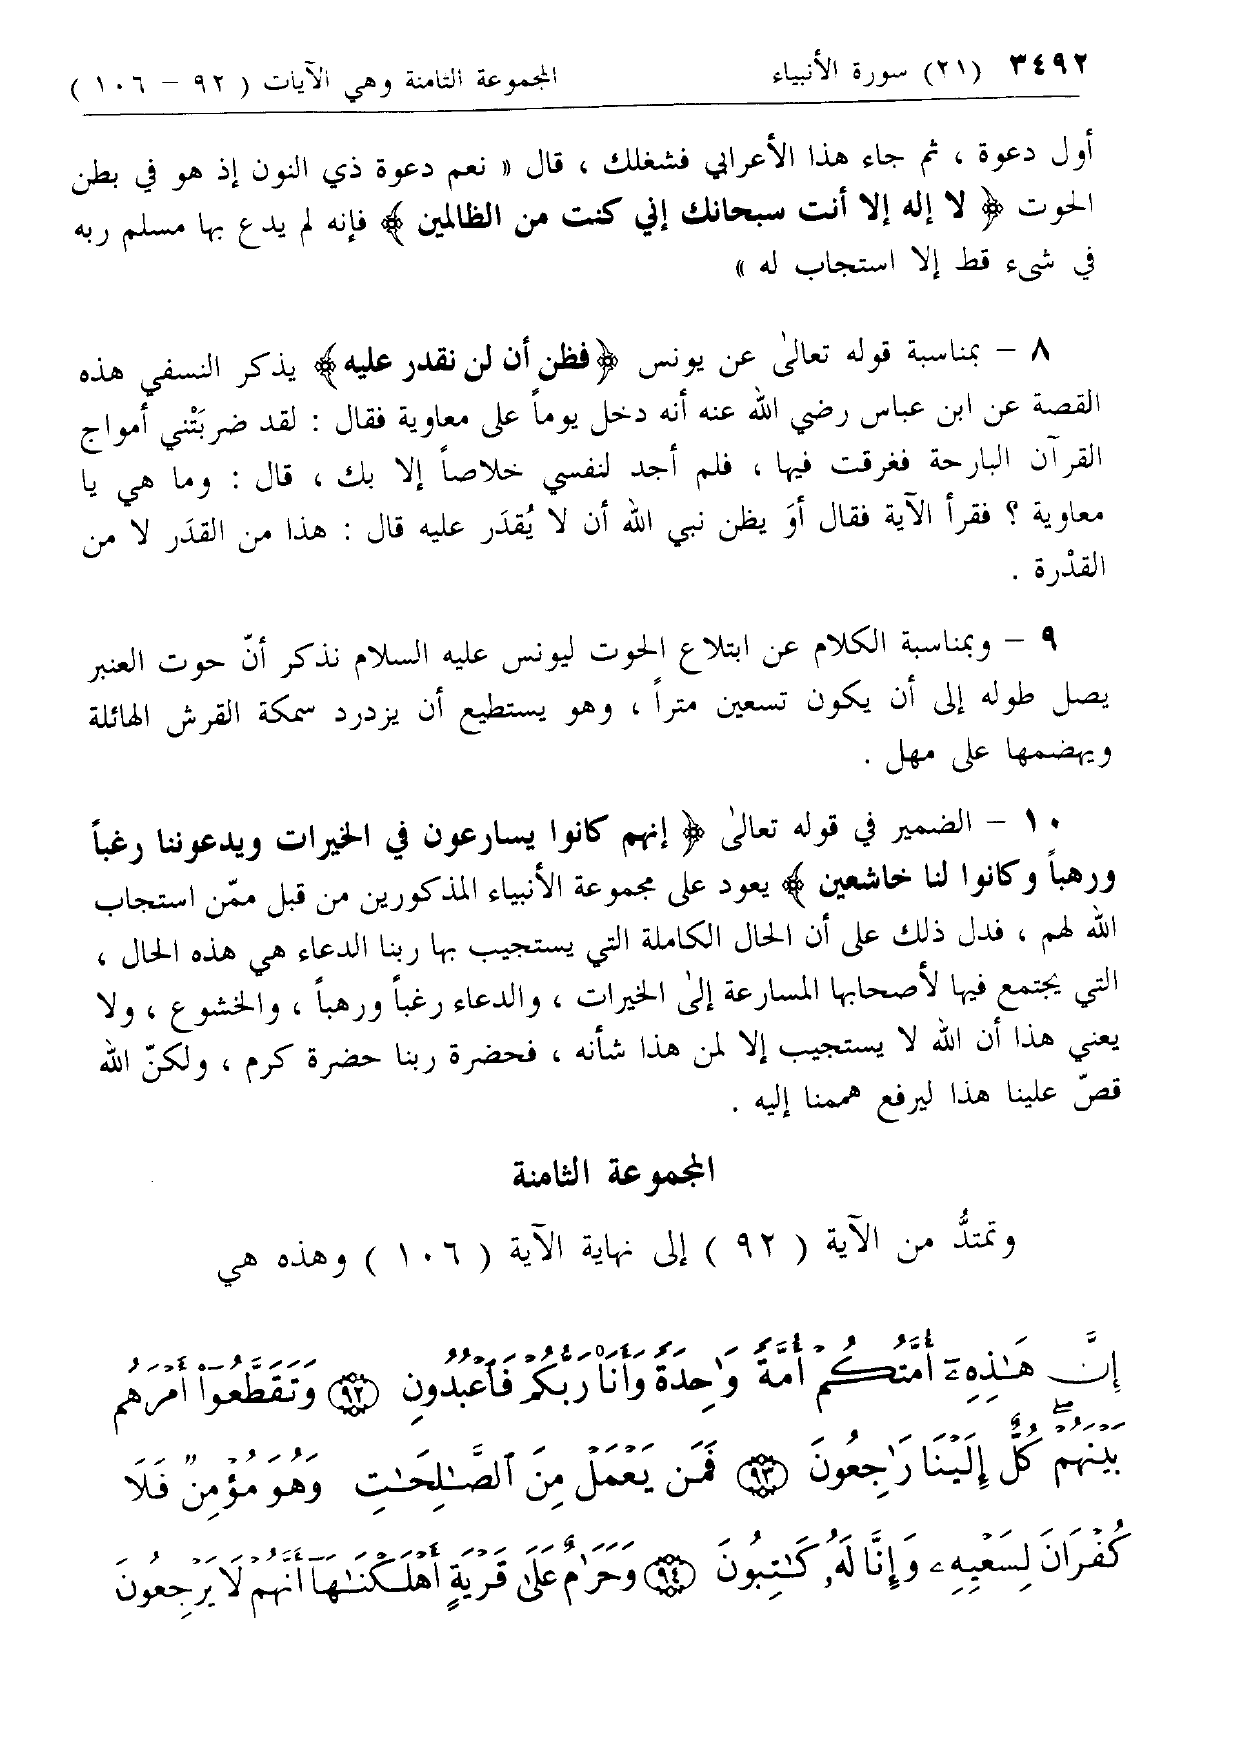 ٣٤٩٢ (٢١) سورة الأنبياء المجموعة الثامنة وهي الآيات ( ٩٢ – ١٠٦ )
أول دعوة ، ثم جاء هذا الأعرابي فشغلك ، قال « نعم دعوة ذي النون إذ هو في بطن
الحوت ﴿ لا إله إلا أنت سبحانك إني كنت من الظالمين ﴾ فإنه لم يدع بها مسلم ربه
في شيء قط إلا استجاب له »
٨ – بمناسبة قوله تعالىٰ عن يونس ﴿فظن أن لن نقدر عليه﴾ يذكر النسفي هذه
القصة عن ابن عباس رضي الله عنه أنه دخل يوماً على معاوية فقال : لقد ضربَتْني أمواج
القرآن البارحة فغرقت فيها ، فلم أجد لنفسي خلاصاً إلا بك ، قال : وما هي يا
معاوية ؟ فقرأ الآية فقال أوَ يظن نبي الله أن لا يُقدَر عليه قال : هذا من القدَر لا من
القدْرة .
٩ – وبمناسبة الكلام عن ابتلاع الحوت ليونس عليه السلام نذكر أنّ حوت العنبر
يصل طوله إلى أن يكون تسعين متراً ، وهو يستطيع أن يزدرد سمكة القرش الهائلة
ويهضمها على مهل .
١٠ – الضمير في قوله تعالىٰ ﴿ إنهم كانوا يسارعون في الخيرات ويدعوننا رغباً
ورهباً وكانوا لنا خاشعين ﴾ يعود على مجموعة الأنبياء المذكورين من قبل ممّن استجاب
الله لهم ، فدل ذلك على أن الحال الكاملة التي يستجيب بها ربنا الدعاء هي هذه الحال ،
التي يجتمع فيها لأصحابها المسارعة إلىٰ الخيرات ، والدعاء رغباً ورهباً ، والخشوع ، ولا
يعني هذا أن الله لا يستجيب إلا لمن هذا شأنه ، فحضرة ربنا حضرة كرم ، ولكنّ الله
قصّ علينا هذا ليرفع هممنا إليه .
المجموعة الثامنة
وتمتدُّ من الآية ( ٩٢ ) إلى نهاية الآية ( ١٠٦ ) وهذه هي
إِنَّ هَـٰذِهِۦٓ أُمَّتُكُمْ أُمَّةً وَٰحِدَةً وَأَنَا۠ رَبُّكُمْ فَٱعْبُدُونِ ﴿٩٢﴾ وَتَقَطَّعُوٓا۟ أَمْرَهُم
بَيْنَهُمْ ۖ كُلٌّ إِلَيْنَا رَٰجِعُونَ ﴿٩٣﴾ فَمَن يَعْمَلْ مِنَ ٱلصَّـٰلِحَـٰتِ وَهُوَ مُؤْمِنٌ فَلَا
كُفْرَانَ لِسَعْيِهِۦ وَإِنَّا لَهُۥ كَـٰتِبُونَ ﴿٩٤﴾ وَحَرَٰمٌ عَلَىٰ قَرْيَةٍ أَهْلَكْنَـٰهَآ أَنَّهُمْ لَا يَرْجِعُونَ